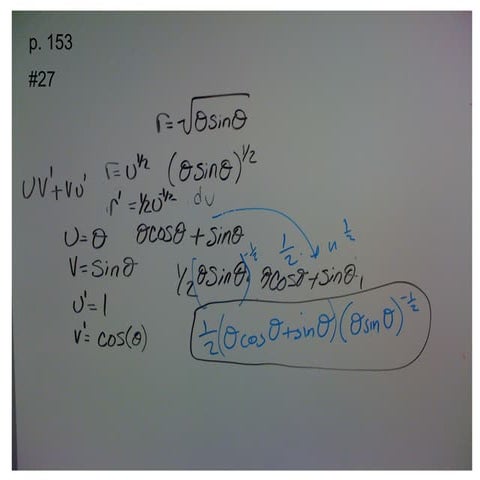 p. 153
#27
r=√θsinθ
r=u^1/2 (θsinθ)^1/2
UV'+VU'
r'=½u^-1/2 du
U=θ θcosθ+sinθ
V=sinθ ½(θsinθ)^-½ θcosθ+sinθ
½·u^½
U'=1
V'=cos(θ)
½(θcosθ+sinθ)(θsinθ)^-½